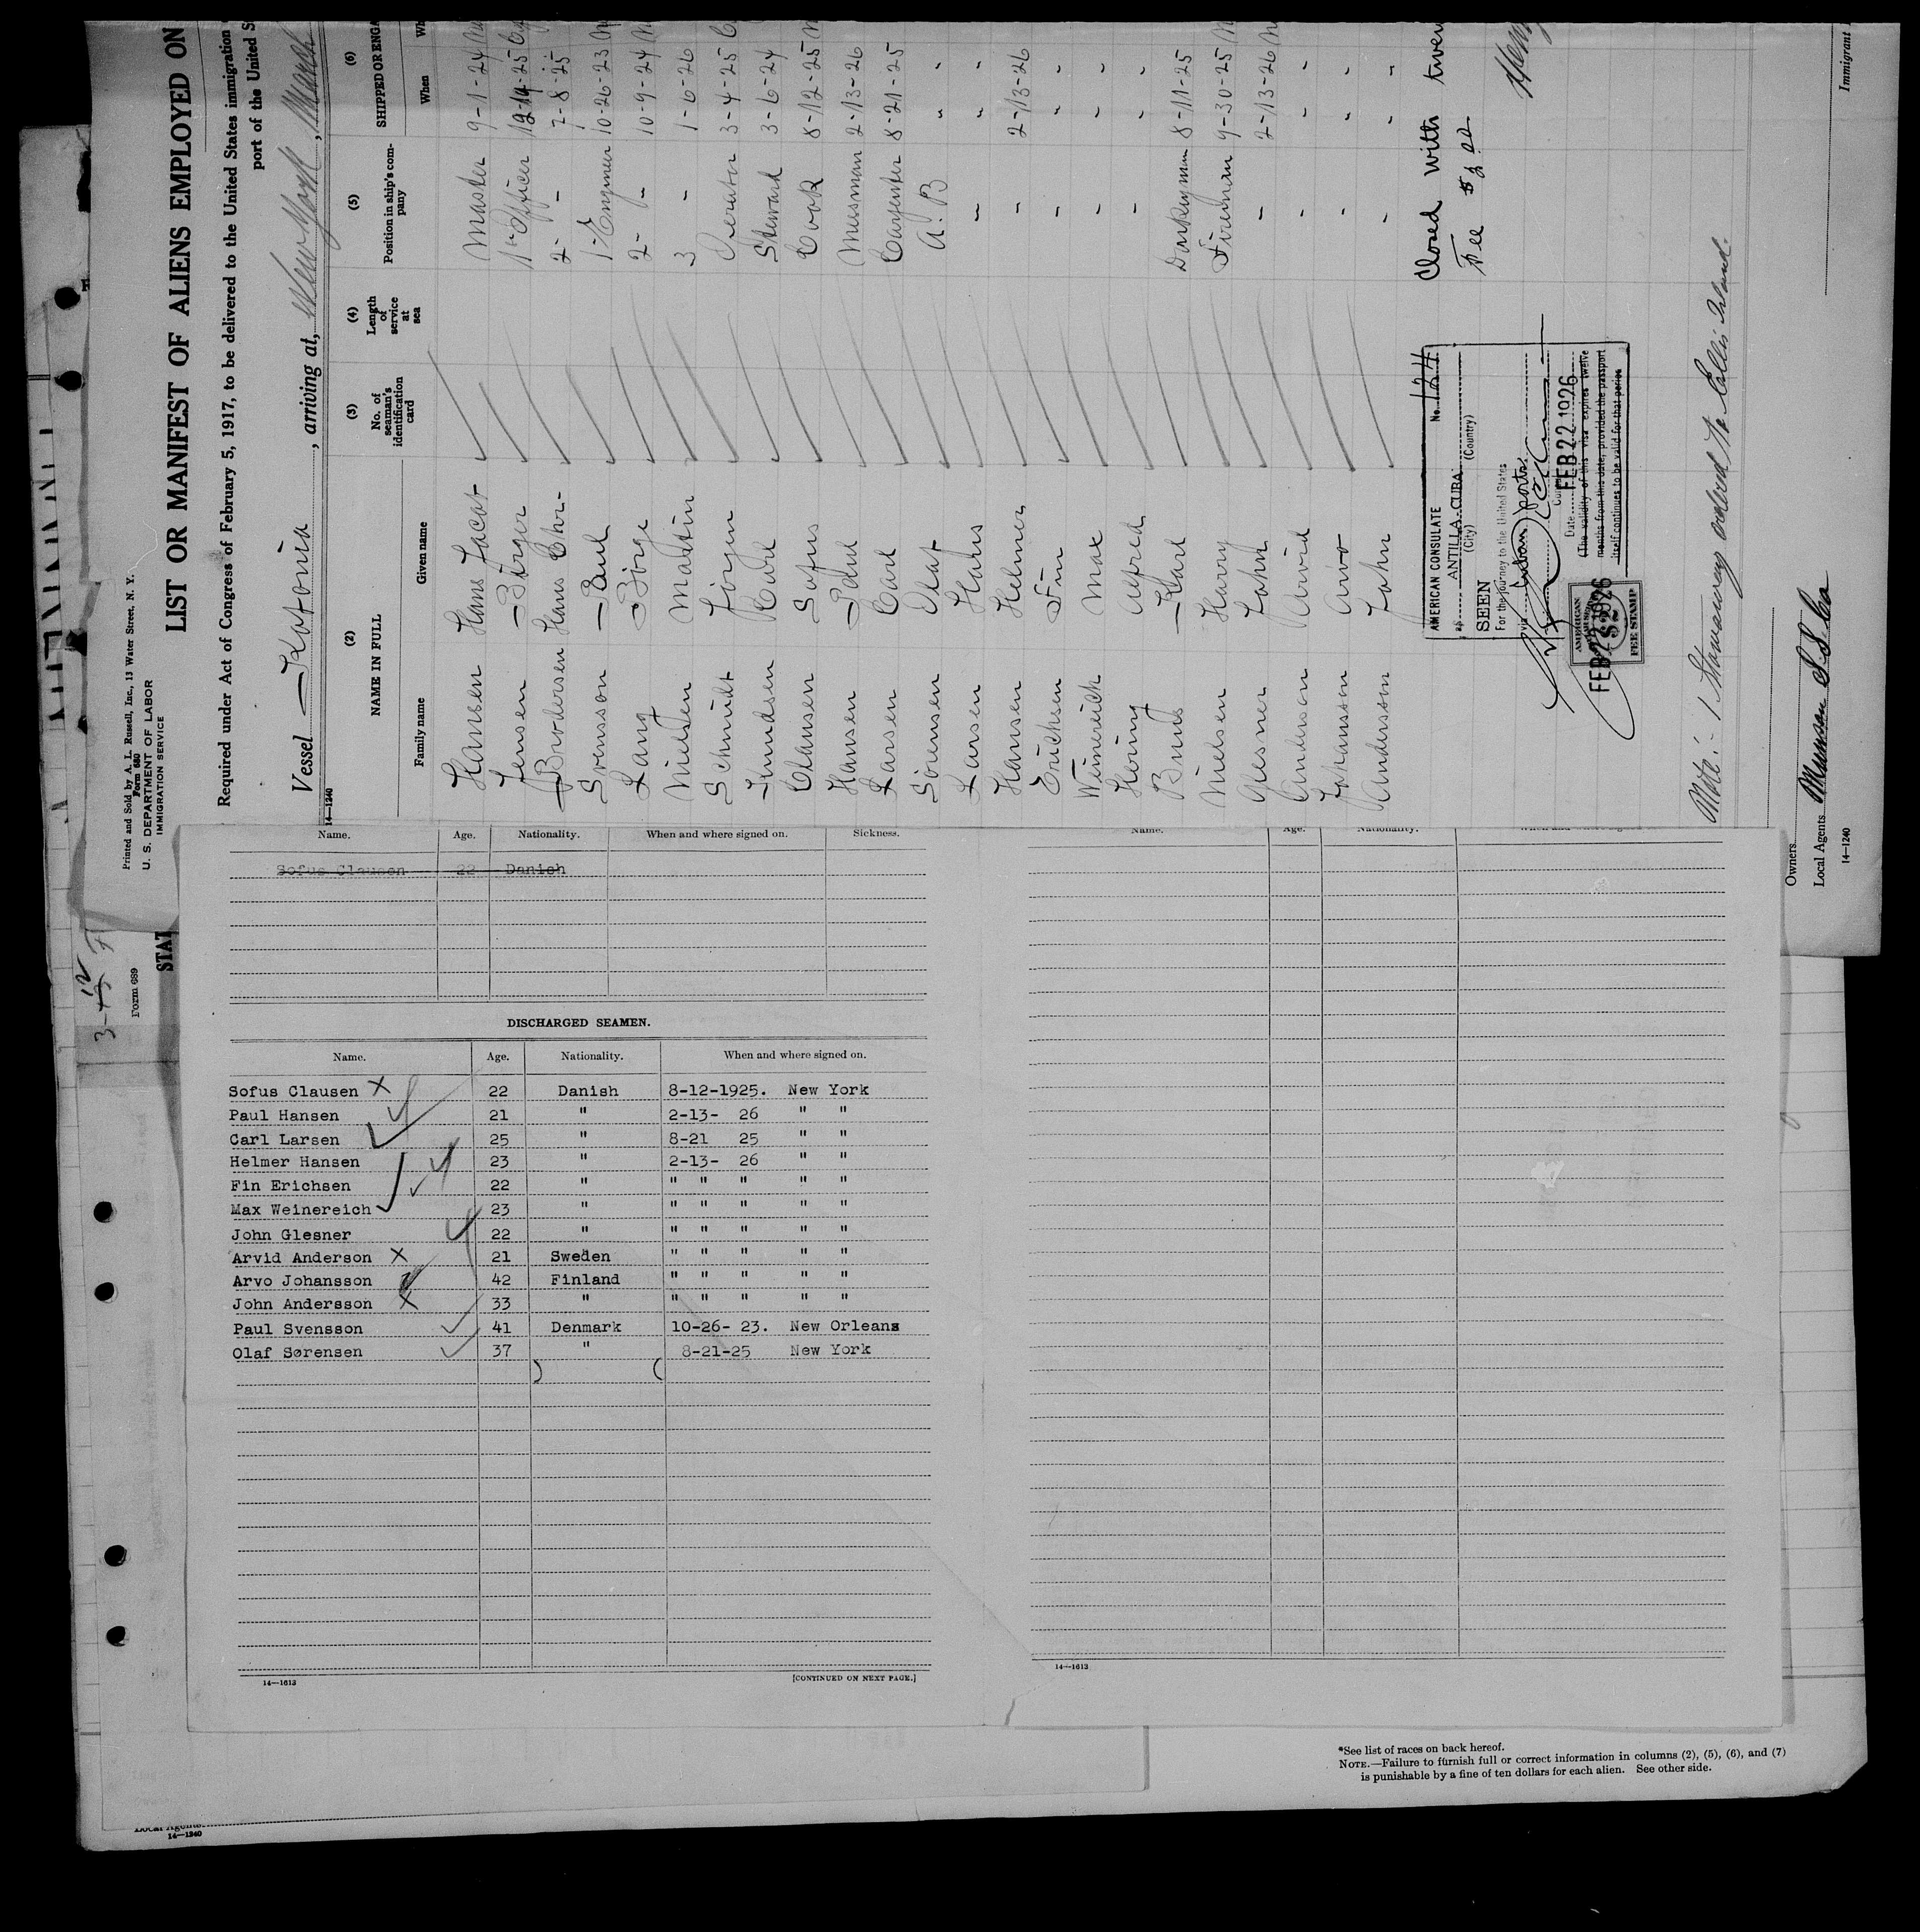 Printed and Sold by A. L. Russell, Inc., 13 Water Street, N. Y.
Form 680
U. S. DEPARTMENT OF LABOR
IMMIGRATION SERVICE
LIST OR MANIFEST OF ALIENS EMPLOYED ON
Required under Act of Congress of February 5, 1917, to be delivered to the United States immigration
port of the United S
Vessel Kotonia, arriving at, New York, March
14—1240
(2) NAME IN FULL
Family name Given name
(3) No. of seaman's identification card
(4) Length of service at sea
(5) Position in ship's company
(6) SHIPPED OR ENGA
When
Hansen Hans Jacob Master 9-1-24
Jensen Birger 1st Officer 12-19-25
Brodersen Hans Chr- 2- - 7-8-25
Svensson Paul 1- Engineer 10-26-23
Lang Börge 2- - 10-9-24
Nielsen Martin 3 - 1-6-26
Schmidt Jörgen Operator 3-4-25
Lundsen Carl Steward 3-6-24
Clausen Sofus Cook 8-12-25
Hansen Paul Messman 2-13-26
Larsen Carl Carpenter 8-21-25
Sörensen Olaf A.B - -
Larsen Hans - - -
Hansen Helmer - 2-13-26
Erichsen Fin - - -
Weinereich Max - - -
Höring Alfred - - -
Bruus Karl Donkeyman 8-11-25
Nielsen Harry Fireman 9-30-25
Glesner John - 2-13-26
Anderson Arvid - - -
Johansson Arvo - - -
Andersson John - - -
Closed with twen
Fee $2.00
AMERICAN CONSULATE No. 124
at ANTILLA-CUBA
(City) (Country)
SEEN
For the journey to the United States
via
Date FEB 22 1926
(The validity of this visa expires twelve
months from this date, provided the passport
itself continues to be valid for that period
AMERICAN
$2
FEE STAMP
FEB 22 1926
Note:- 1 Stowaway ordered to Ellis Island.
Owners
Local Agents Munson S.S. Co
14—1240
Immigrant
3-12
Form 689
STAT
Name. Age. Nationality. When and where signed on. Sickness.
Sofus Clausen 22 Danish
DISCHARGED SEAMEN.
Name. Age. Nationality. When and where signed on.
Sofus Clausen X 22 Danish 8-12-1925. New York
Paul Hansen 21 " 2-13- 26 " "
Carl Larsen 25 " 8-21 25 " "
Helmer Hansen 23 " 2-13- 26 " "
Fin Erichsen 22 " " " " " "
Max Weinereich 23 " " " " " "
John Glesner 22 " " " " " "
Arvid Anderson X 21 Sweden " " " " "
Arvo Johansson 42 Finland " " " " "
John Andersson X 33 " " " " " "
Paul Svensson 41 Denmark 10-26- 23. New Orleans
Olaf Sørensen 37 " 8-21-25 New York
14—1613
[CONTINUED ON NEXT PAGE.]
Name. Age. Nationality.
14—1613
*See list of races on back hereof.
NOTE.—Failure to furnish full or correct information in columns (2), (5), (6), and (7)
is punishable by a fine of ten dollars for each alien. See other side.
Local Agents
14—1240